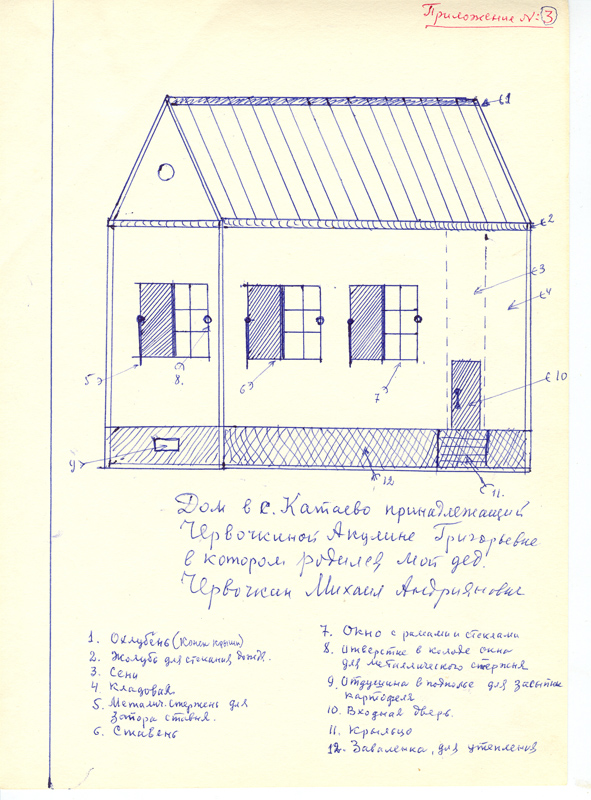 Приложение №: 3
1
2
3
4
5
8.
6
7
10
9
12
11.
Дом в с. Катаево принадлежащий
Червочкиной Акулине Григорьевне
в котором родился мой дед.
Червочкин Михаил Андриянович
1. Охлубень (Конек крыши)
2. Жолубь для стекания дождя.
3. Сени
4 Кладовая
5 Металич. стержень для
затора ставня.
6. Ставень
7. Окно с рамами и стеклами
8. Отверстие в колоде окна
для металлического стержня
9. Отдушина в подполье для засыпки
картофеля
10. Входная дверь.
11. Крыльцо
12. Заваленка, для утепления